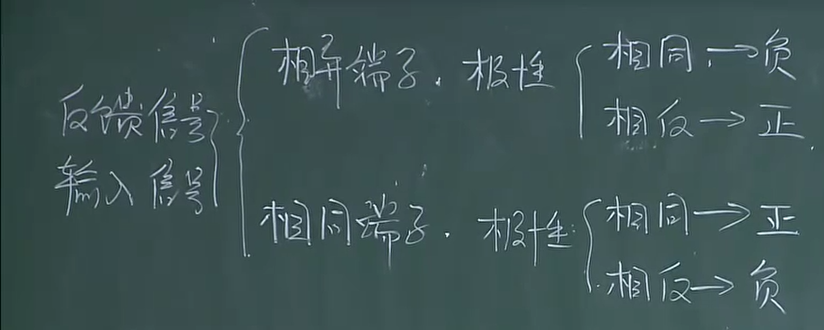 反馈信号
输入信号
相异端子. 极性
相同→负
相反→正
相同端子. 极性:
相同→正
相反→负